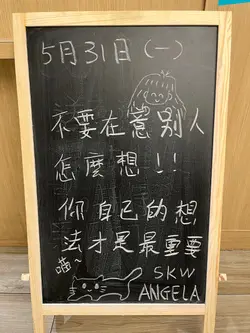 5月31日(一)
不要在意別人
怎麼想!!
你自己的想
法才是最重要
喵~
SKW
ANGELA